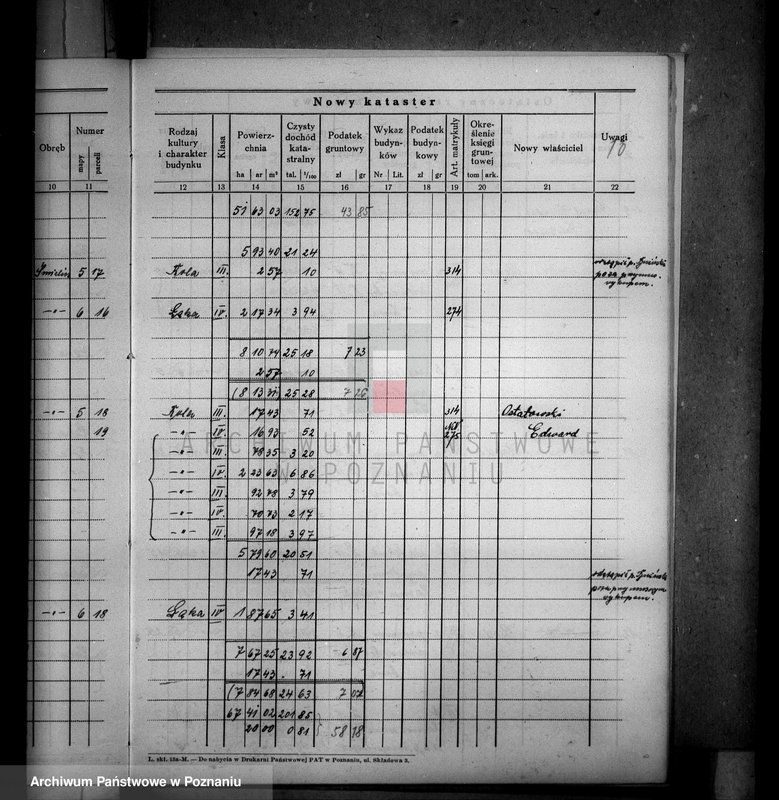 Nowy kataster
Obręb Numer mapy parceli Rodzaj kultury i charakter budynku Klasa Powierzchnia ha ar m² Czysty dochód katastralny tal. 1/100 Podatek gruntowy zł gr Wykaz budynków Nr Lit. Podatek budynkowy zł gr Art. matrykuły Określenie księgi gruntowej tom ark. Nowy właściciel Uwagi
10 11 12 13 14 15 16 17 18 19 20 21 22
51 63 03 152 75 43 85
5 93 40 21 24
5 17 Rola III. 2 57 10 314
-"- 6 16 Łąka IV. 2 17 34 3 94 274
8 10 74 25 18 7 23
2 57 10
(8 13 31 25 28
-"- 5 18 Rola III. 17 43 71 314 Ostałowski
19 -"- IV. 16 93 52 275 Edward
-"- III. 78 35 3 20
-"- IV. 2 23 63 6 86
-"- III. 92 78 3 79
-"- IV. 70 73 2 17
-"- III. 97 18 3 97
5 79 60 20 51
17 43 71
-"- 6 18 Łąka IV 1 87 65 3 41
7 67 25 23 92 6 87
17 43 . 71
(7 84 68 24 63 7 07
67 41 02 201 85
20 00 0 81 58 18
L. skł. 15a-M. — Do nabycia w Drukarni Państwowej PAT w Poznaniu, ul. Składowa 3.
ARCHIWUM PAŃSTWOWE
W POZNANIU
Archiwum Państwowe w Poznaniu